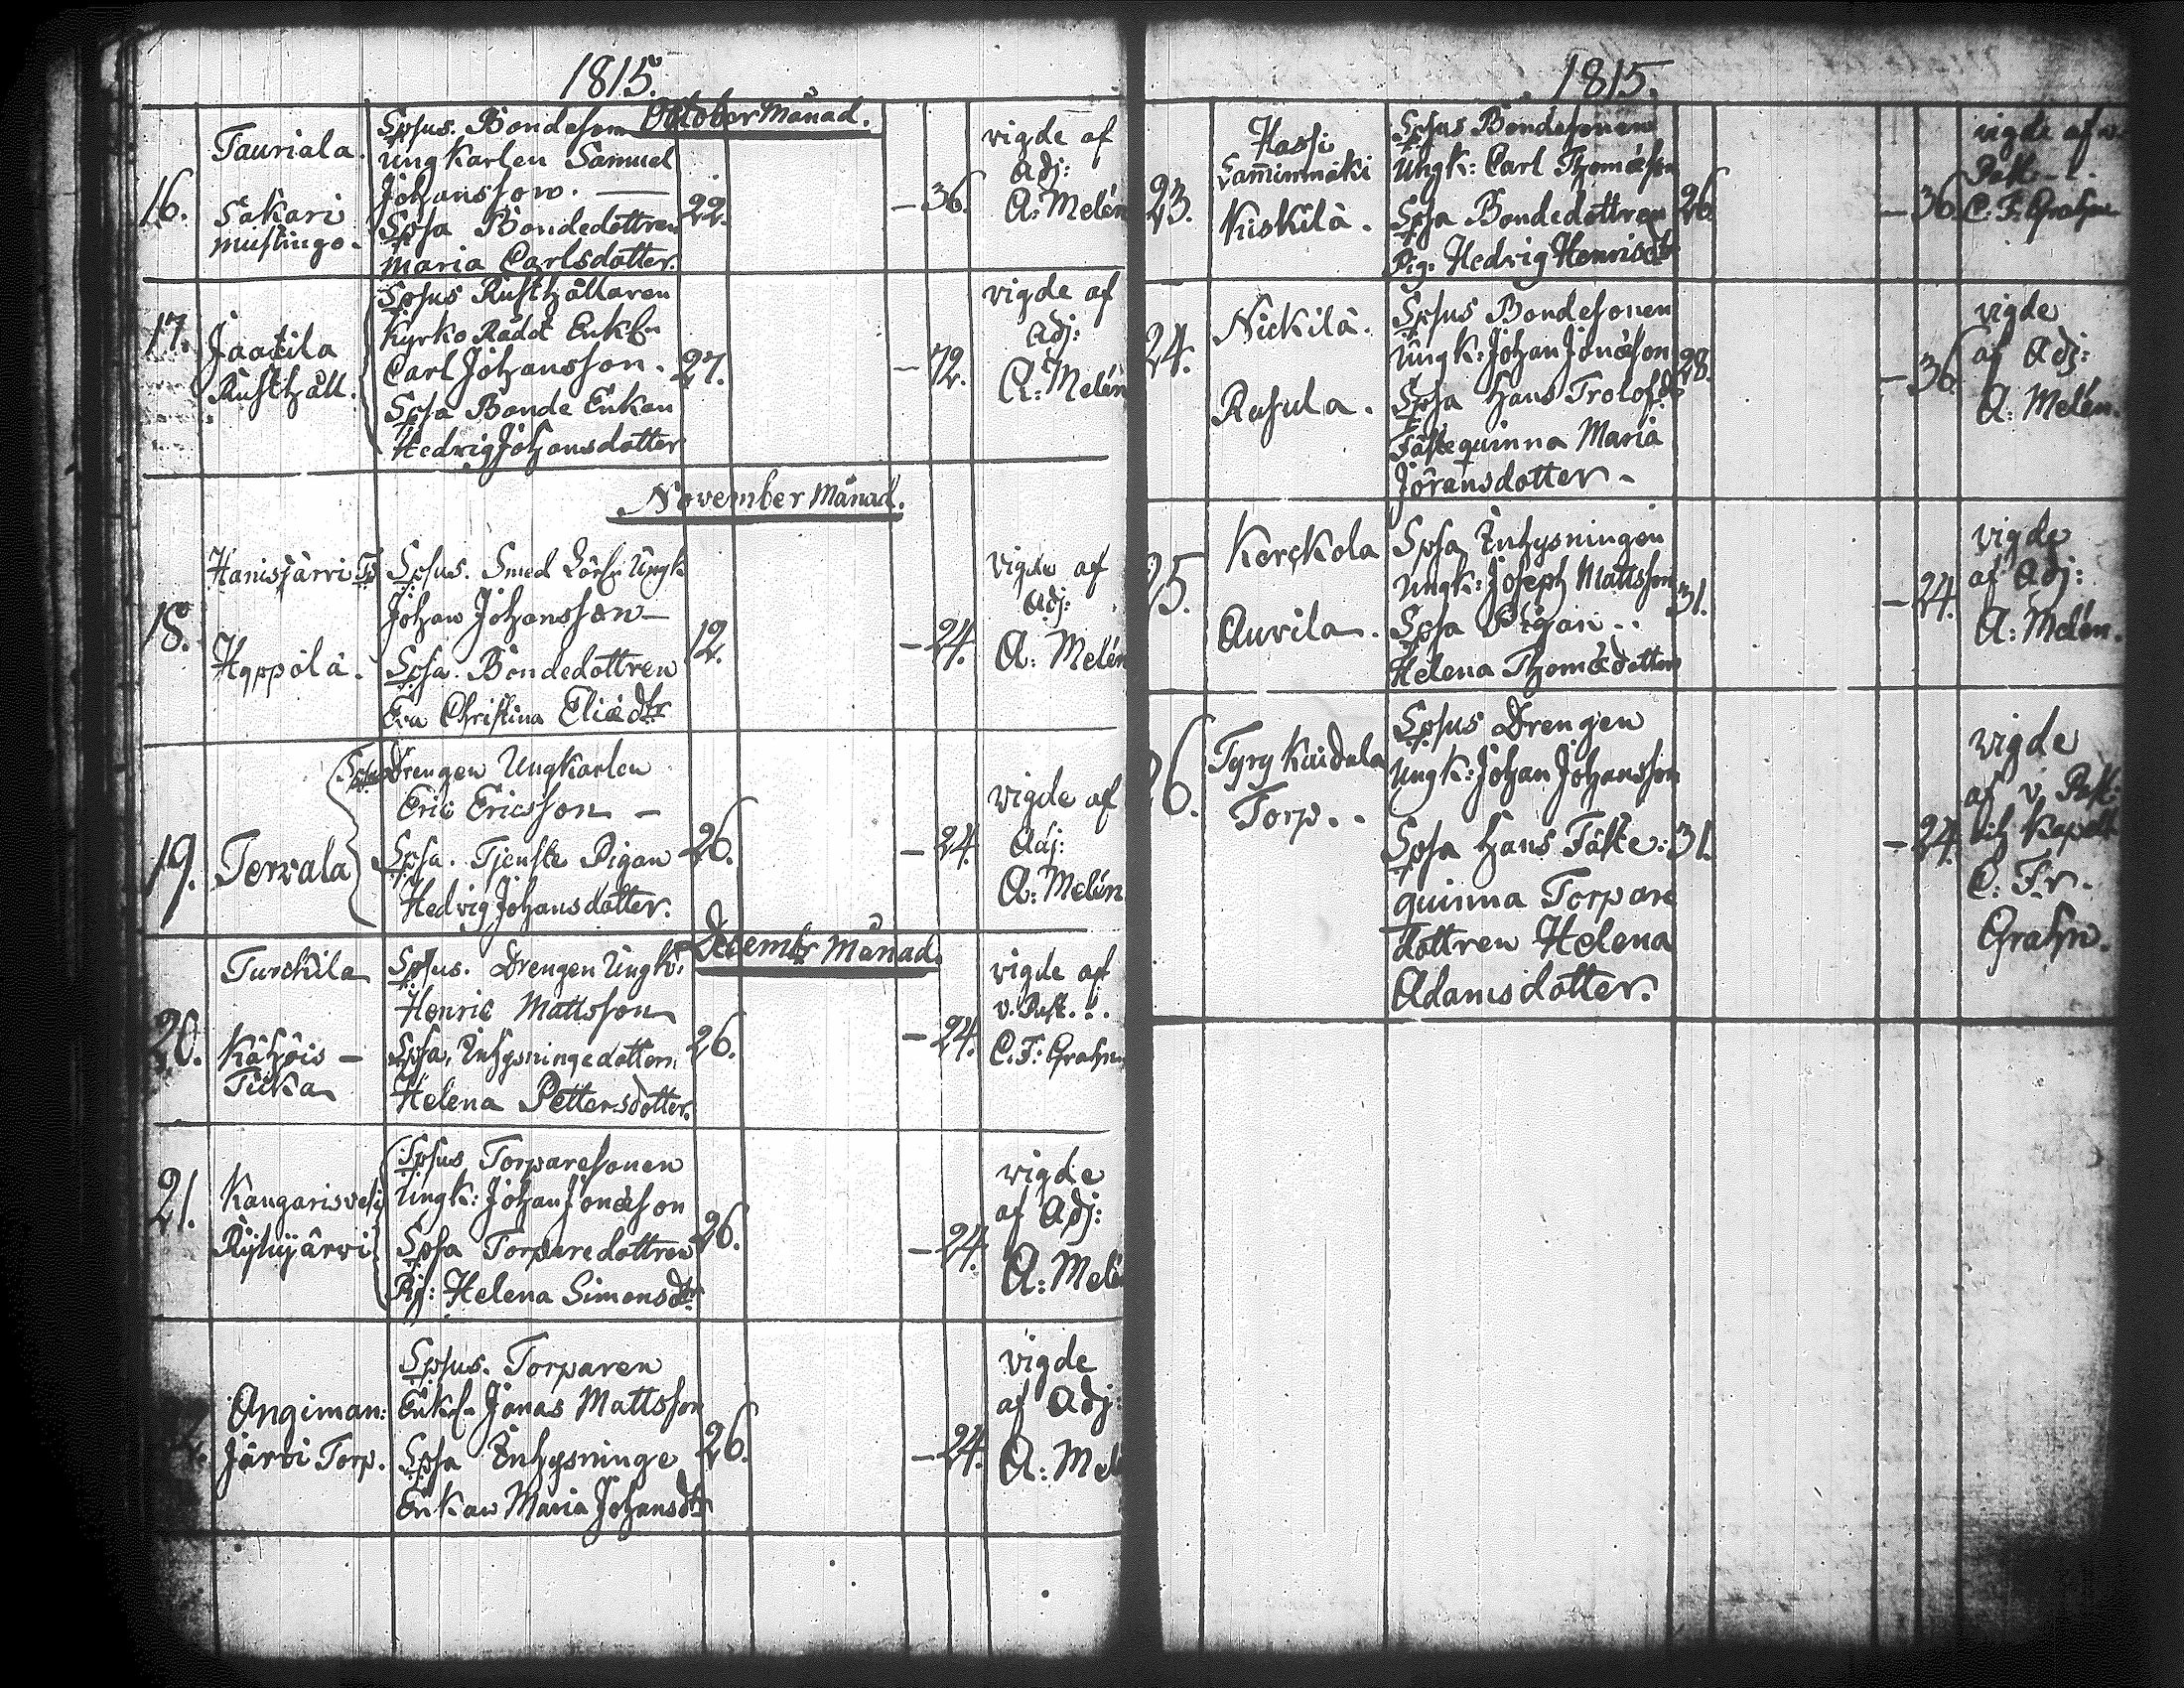 1815.
October Månad.
16.
Tauriala.
Sakari
mustingo.
Spsus. Bondeson
ungkarlen Samuel
Johansson.
Spsa Bondedottren
Maria Carlsdotter.
22.
– 36.
vigde af
Adj:
A: Melén
17.
Jaatila
Rusthåll.
Spsus Rusthållaren
Kyrko Rådet Enkl:n
Carl Johansson.
Spsa Bonde Enkan
Hedvig Johansdotter
27.
– 72.
vigde af
Adj:
A: Melén
November Månad.
18.
Hanisjärvi Tp
Hyppölä.
Spsus. Smed Ungk
Johan Johansson
Spsa. Bondedottren
Eva Christina Eliædtr
12.
– 24.
vigde af
Adj:
A: Melén
19.
Tervala
Spsus Drengen Ungkarlen
Eric Ericsson –
Spsa. Tjenste Pigan
Hedvig Johansdotter.
26.
– 24.
vigde af
Adj:
A: Melén
Decembr Månad.
20.
Turckila
Kähöis –
Ticka
Spsus. Drengen Ungk:
Henric Mattsson
Spsa, Inhysningedottern
Helena Pettersdotter.
26.
– 24.
vigde af
v. Past. . .
C. F: Grahn
21.
Kangarisvesi
Ryhyjärvi
Spsus Torparesonen
Ungk: Johan Jonæson
Spsa Torparedottren
Pig: Helena Simonsdtr
26.
– 24.
vigde
af Adj:
A: Melé
Angiman:
Järvi Torp.
Spsus. Torparen
Enkl:n Jonas Mattsson
Spsa Inhysninge
Enkan Maria Johansdtr
26.
– 24.
vigde
af Adj:
A: Mel
1815.
23.
Hassi
Samminmäki
Kiskilä.
Spsus Bondesonen
Ungk: Carl Thomæson
Spsa Bondedottren
Pig: Hedvig Henrisdtr
26.
– 36.
vigde af v.
Past. . .
C. F: Grahn
24.
Nickilä.
Rasula.
Spsus Bondesonen
Ungk: Johan Jonæson
Spsa Hans Trolofde
Fästequinna Maria
Jöransdotter.
28.
– 36.
vigde
af Adj:
A: Melén.
25.
Kerckola
Auvila.
Spsa Inhysningen
Ungk: Joseph Mattsson
Spsa Pigan . .
Helena Thomædotter
31.
– 24.
vigde
af Adj:
A: Melén.
26.
Tyry Kaidala
Torp. .
Spsus Drengen
Ungk: Johan Johansson
Spsa Hans Fäste:
quinna Torpare
dottren Helena
Adamsdotter.
31.
– 24.
vigde
af v. Past:
och Kapell:
C. Fr.
Grahn.